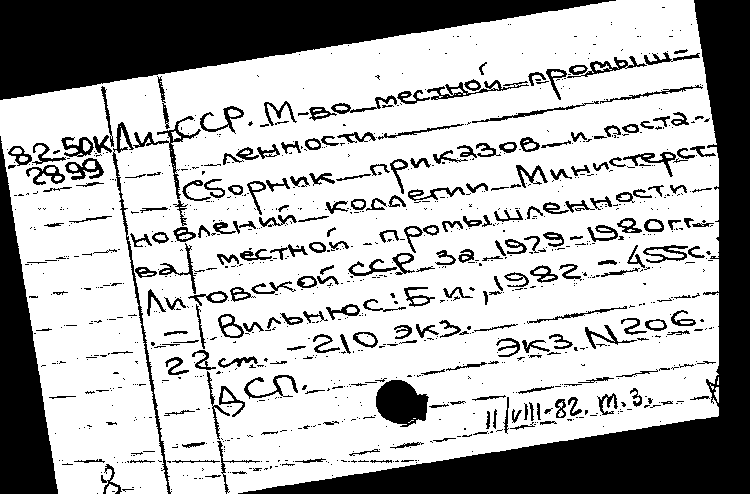 82-50К Лит ССР. М-во местной промыш-
2899
ленности.
Сборник приказов и поста-
новлений коллегии Министерст-
ва местной промышленности
Литовской ССР за 1979-1980 гг.
- Вильнюс: Б.и., 1982. - 455с.
22 см. - 210 экз.
экз. N 206.
ДСП.
11/VIII-82. т.з.